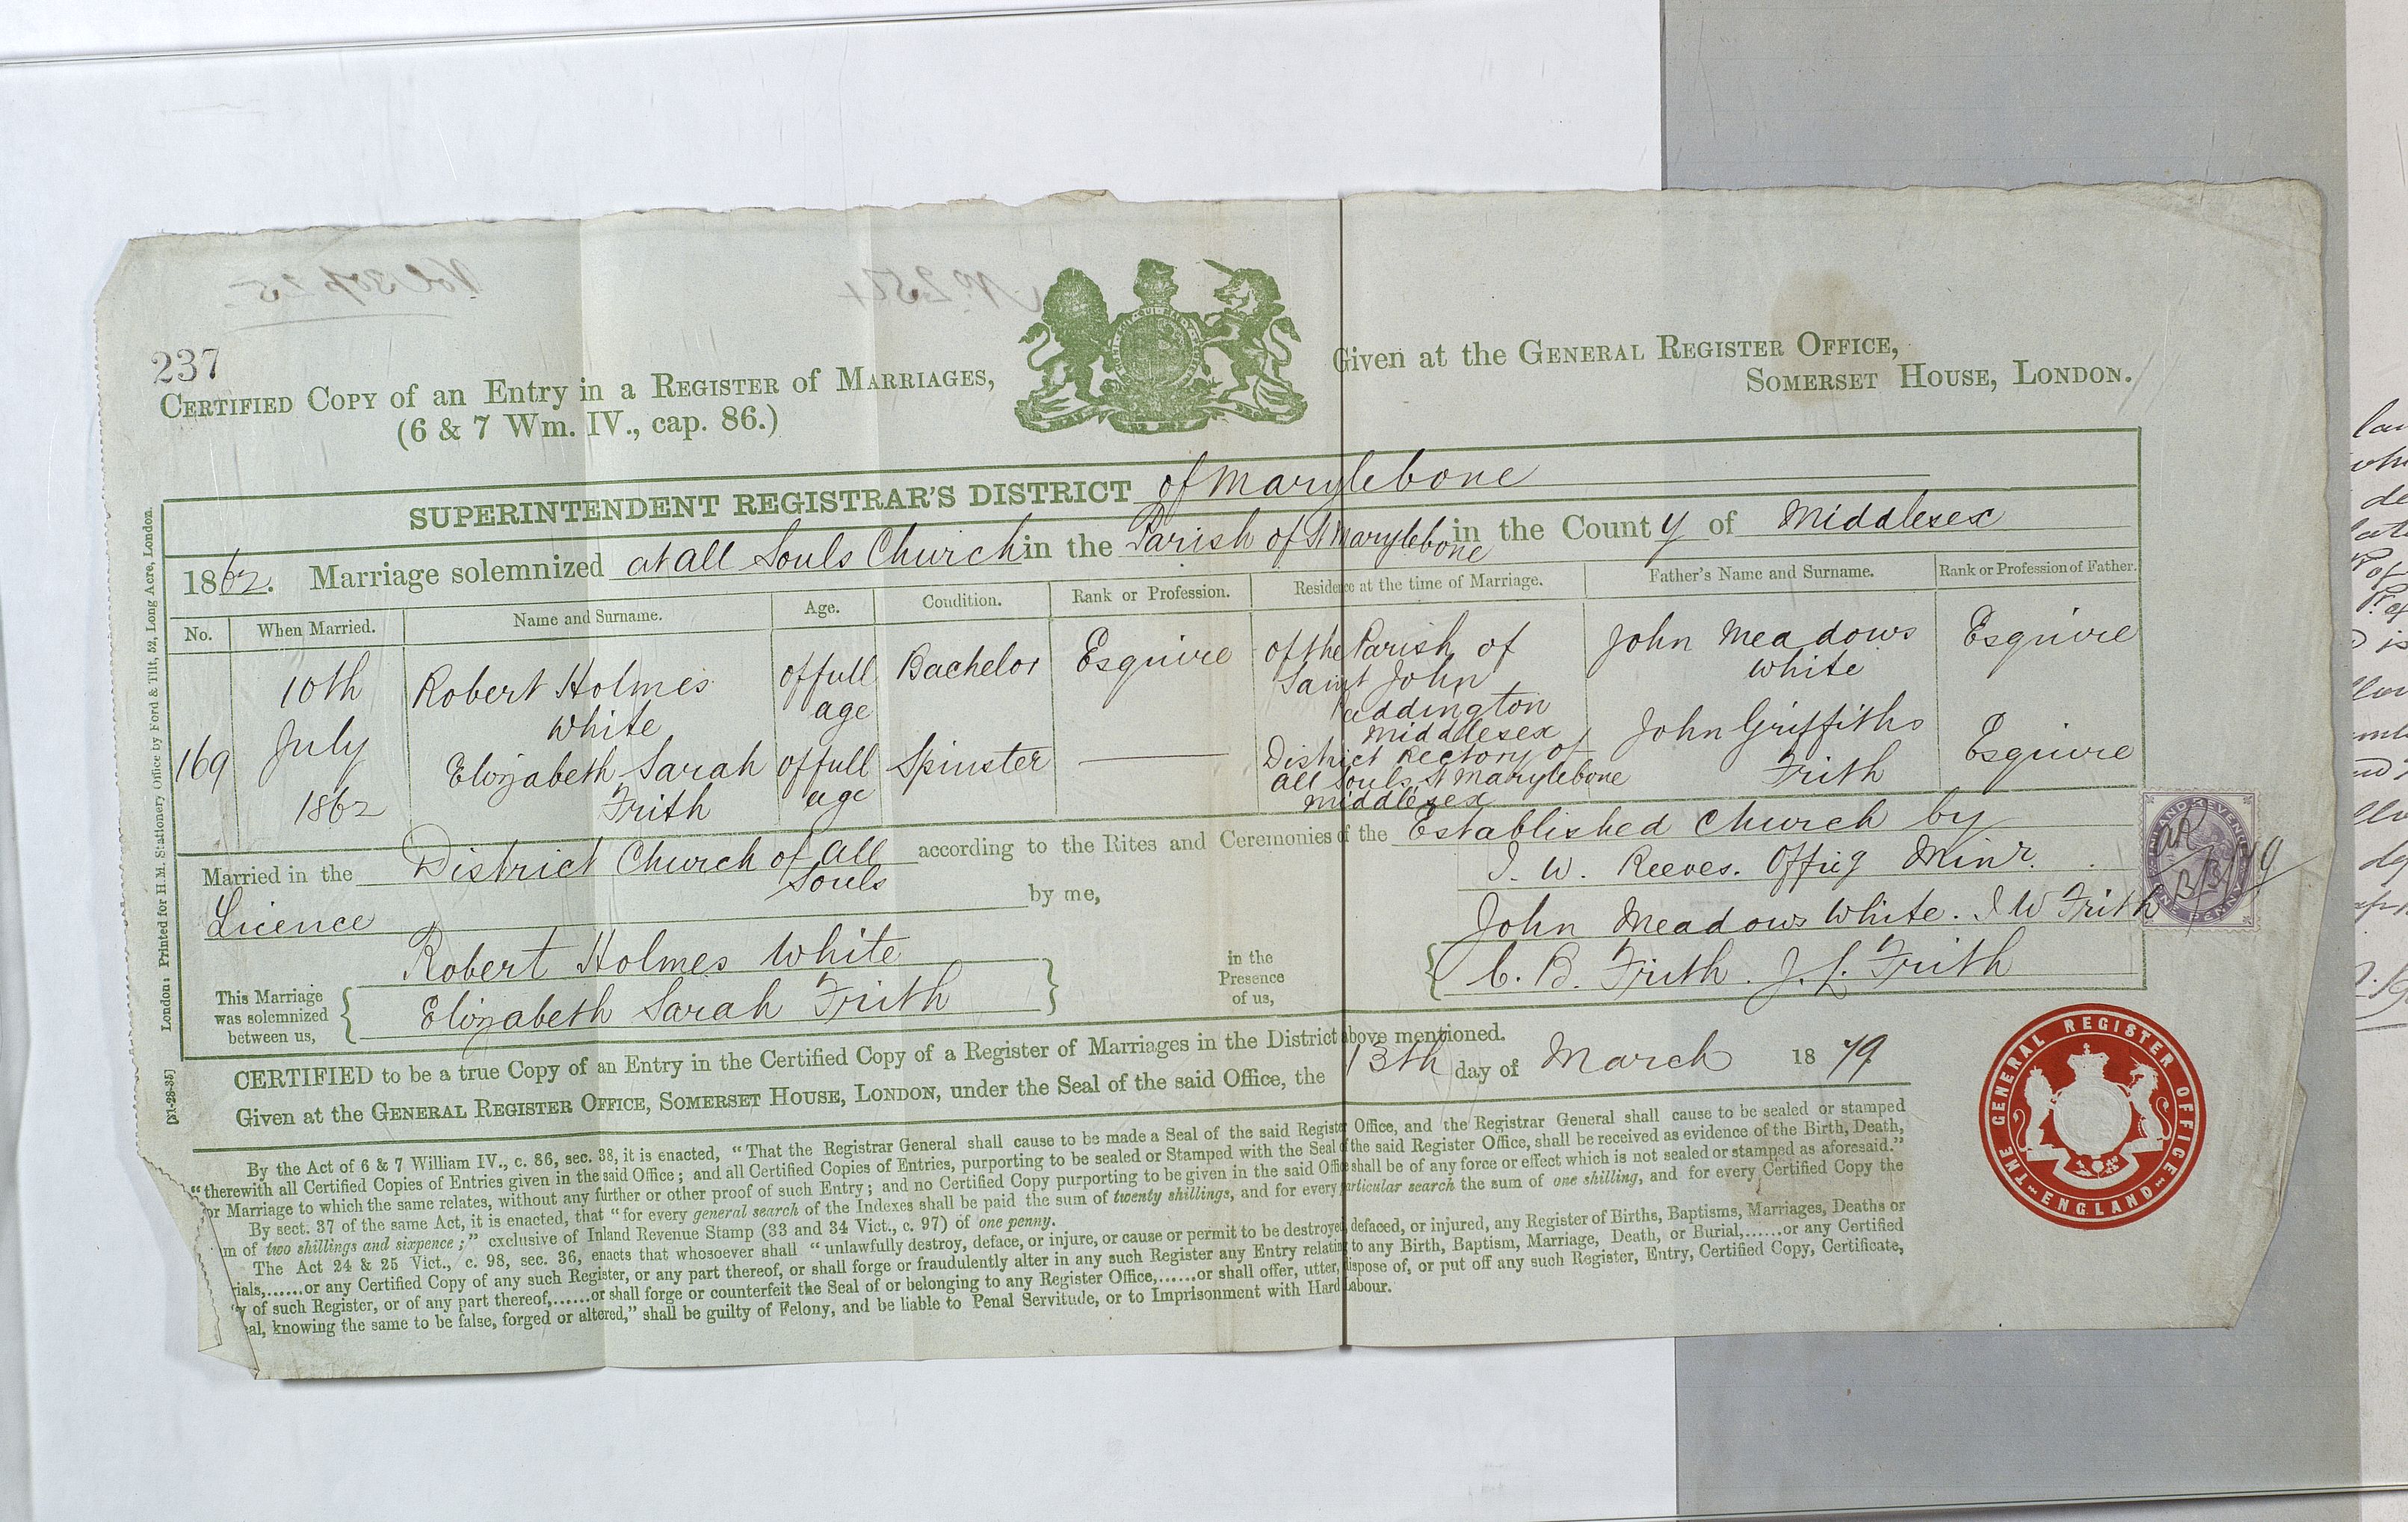 237
CERTIFIED COPY of an Entry in a REGISTER of MARRIAGES,
(6 & 7 Wm. IV., cap. 86.)
Given at the GENERAL REGISTER OFFICE,
SOMERSET HOUSE, LONDON.
SUPERINTENDENT REGISTRAR'S DISTRICT of Marylebone
1862. Marriage solemnized at all Souls Church in the Parish of St Marylebone in the County of Middlesex
No. When Married. Name and Surname. Age. Condition. Rank or Profession. Residence at the time of Marriage. Father's Name and Surname. Rank or Profession of Father.
169
10th
July
1862
Robert Holmes
White
of full
age
Bachelor
Esquire
of the Parish of
Saint John
Paddington
Middlesex
John Meadows
White
Esquire
Elizabeth Sarah
Frith
of full
age
Spinster
District Rectory of
All Souls St Marylebone
Middlesex
John Griffiths
Frith
Esquire
Married in the District Church of All Souls according to the Rites and Ceremonies of the Established Church by
Licence by me, J. W. Reeves. Offig Minr.
This Marriage
was solemnized
between us,
Robert Holmes White
Elizabeth Sarah Frith
in the
Presence
of us,
John Meadows White. J W Frith
C. B. Frith. J. L. Frith
CERTIFIED to be a true Copy of an Entry in the Certified Copy of a Register of Marriages in the District above mentioned.
Given at the GENERAL REGISTER OFFICE, SOMERSET HOUSE, LONDON, under the Seal of the said Office, the 13th day of March 1879
By the Act of 6 & 7 William IV., c. 86, sec. 38, it is enacted, "That the Registrar General shall cause to be made a Seal of the said Register Office, and the Registrar General shall cause to be sealed or stamped
"therewith all Certified Copies of Entries given in the said Office; and all Certified Copies of Entries, purporting to be sealed or Stamped with the Seal of the said Register Office, shall be received as evidence of the Birth, Death,
or Marriage to which the same relates, without any further or other proof of such Entry; and no Certified Copy purporting to be given in the said Office shall be of any force or effect which is not sealed or stamped as aforesaid."
By sect. 37 of the same Act, it is enacted, that "for every general search of the Indexes shall be paid the sum of twenty shillings, and for every particular search the sum of one shilling, and for every Certified Copy the
m of two shillings and sixpence;" exclusive of Inland Revenue Stamp (33 and 34 Vict., c. 97) of one penny.
The Act 24 & 25 Vict., c. 98, sec. 36, enacts that whosoever shall "unlawfully destroy, deface, or injure, or cause or permit to be destroyed, defaced, or injured, any Register of Births, Baptisms, Marriages, Deaths or
rials,......or any Certified Copy of any such Register, or any part thereof, or shall forge or fraudulently alter in any such Register any Entry relating to any Birth, Baptism, Marriage, Death, or Burial,......or any Certified
y of such Register, or of any part thereof,......or shall forge or counterfeit the Seal of or belonging to any Register Office,......or shall offer, utter, dispose of, or put off any such Register, Entry, Certified Copy, Certificate,
eal, knowing the same to be false, forged or altered," shall be guilty of Felony, and be liable to Penal Servitude, or to Imprisonment with Hard Labour.
London: Printed for H.M. Stationery Office by Ford & Tilt, 52, Long Acre, London.
INLAND REVENUE
ONE PENNY
THE GENERAL REGISTER OFFICE
ENGLAND